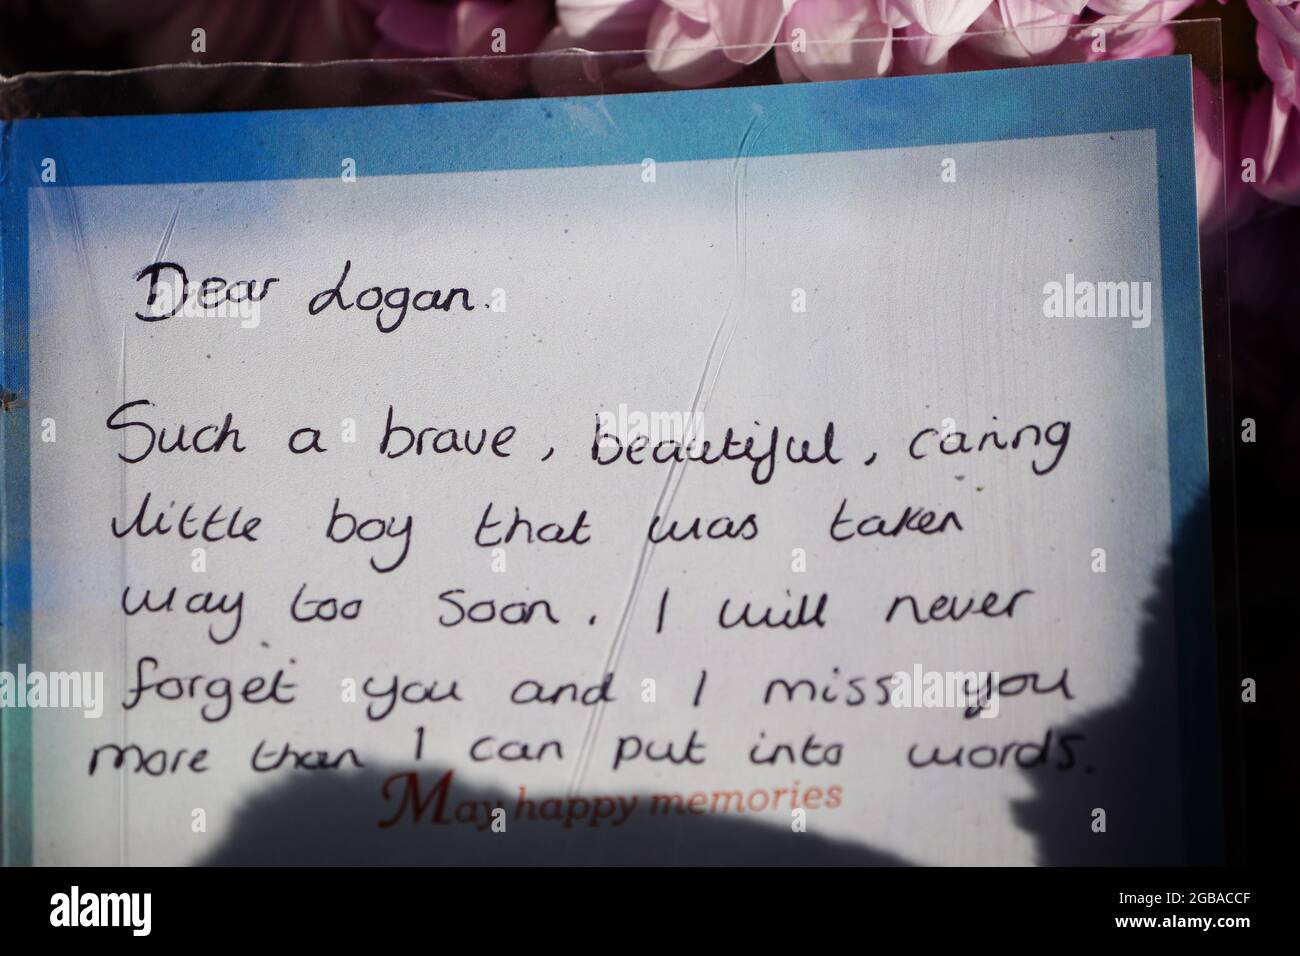 Dear Logan.
Such a brave, beautiful, caring
little boy that was taken
way too soon. I will never
forget you and I miss you
more than I can put into words.
May happy memories
a
alamy
alamy
Image ID: 2GBACCF
www.alamy.com